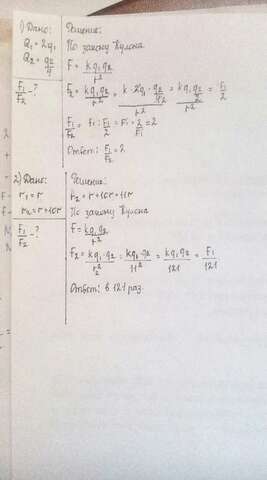 1) Дано:
Q₁ = 2q₁
Q₂ = q₂/4
F₁/F₂ - ?
Решение:
По закону Кулона
F = kq₁q₂/r²
F₂ = kq₁q₂/r² = k·2q₁·q₂/4 / r² = kq₁q₂/2 / r² = F₁/2
F₁/F₂ = F₁ : F₁/2 = F₁·2/F₁ = 2
Ответ: F₁/F₂ = 2
2) Дано:
r₁ = r
r₂ = r+10r
F₁/F₂ - ?
Решение:
r₂ = r+10r=11r
По закону Кулона
F = kq₁q₂/r²
F₂ = kq₁·q₂/r² = kq₁·q₂/11² = kq₁q₂/121 = F₁/121
Ответ: в 121 раз.